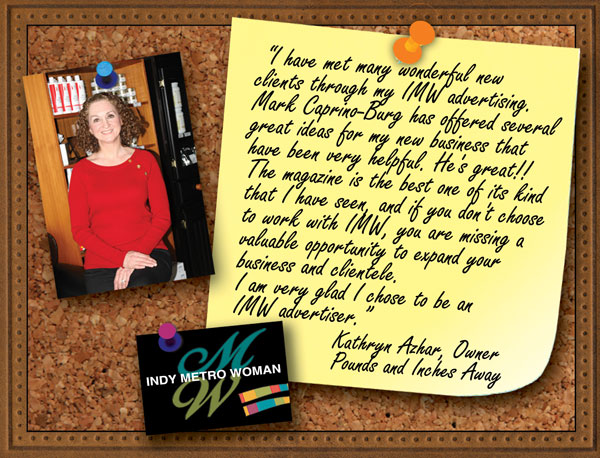 "I have met many wonderful new
clients through my IMW advertising.
Mark Caprino-Burg has offered several
great ideas for my new business that
have been very helpful. He's great!!
The magazine is the best one of its kind
that I have seen, and if you don't choose
to work with IMW, you are missing a
valuable opportunity to expand your
business and clientele.
I am very glad I chose to be an
IMW advertiser."
Kathryn Azhar, Owner
Pounds and Inches Away
M
INDY METRO WOMAN
W